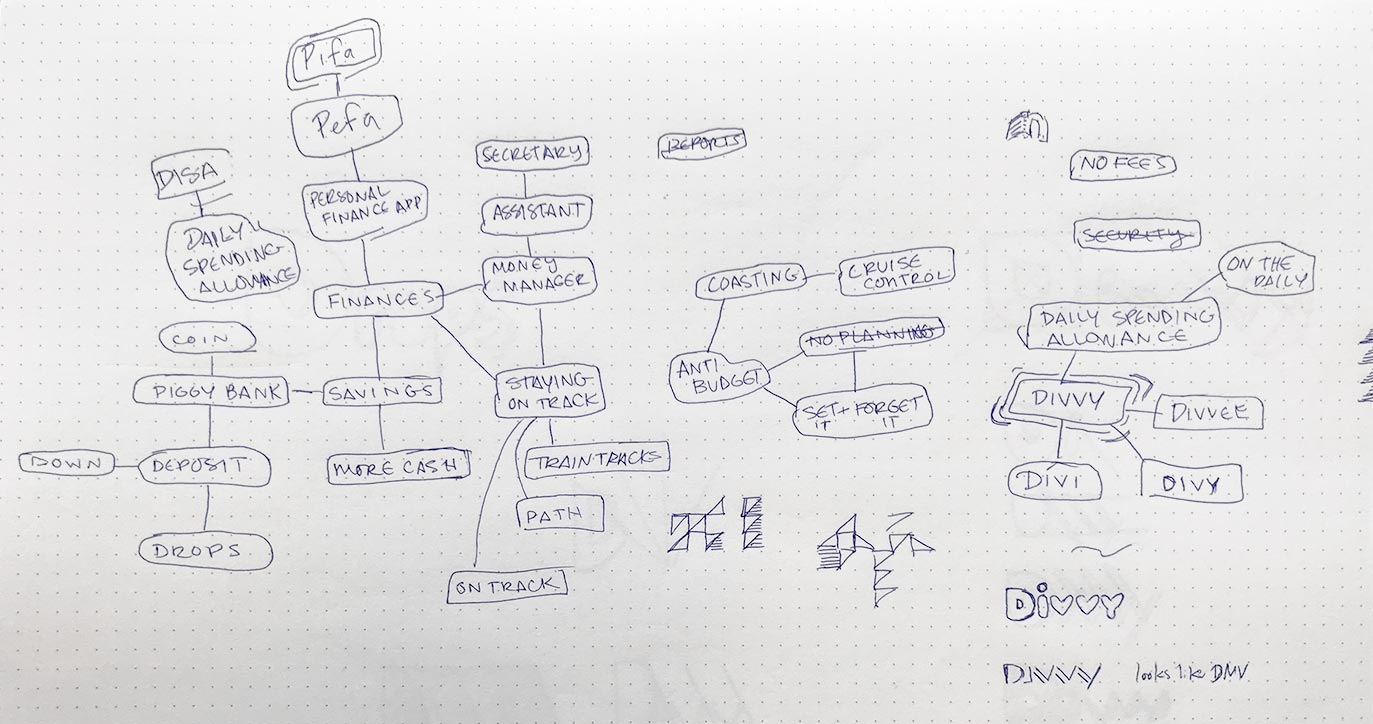 Pifa
Pefa
DISA
DAILY
SPENDING
ALLOWANCE
PERSONAL
FINANCE APP
SECRETARY
ASSISTANT
MONEY
MANAGER
FINANCES
COIN
PIGGY BANK
SAVINGS
STAYING
ON TRACK
DOWN
DEPOSIT
MORE CASH
TRAIN TRACKS
PATH
DROPS
ON TRACK
REPORTS
COASTING
CRUISE
CONTROL
NO PLANNING
ANTI
BUDGET
SET + FORGET
IT IT
NO FEES
SECURITY
ON THE
DAILY
DAILY SPENDING
ALLOWANCE
DIVVY
DIVVEE
DIVI
DIVY
Divvy
DIVVY looks like DMV